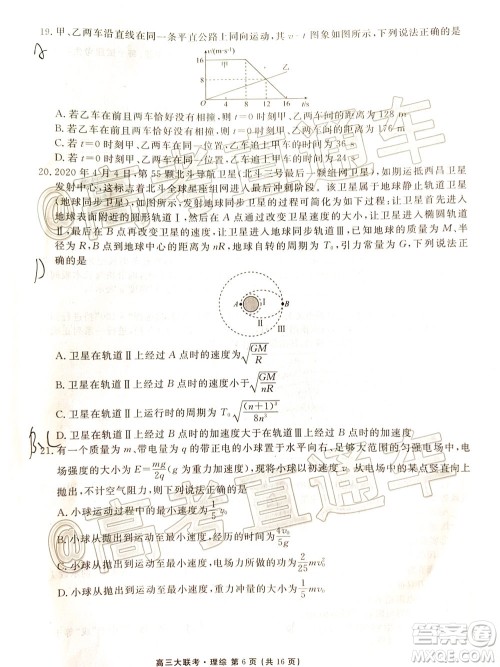 19. 甲、乙两车沿直线在同一条平直公路上同向运动，其 v-t 图象如图所示，下列说法正确的是
A
v/(m·s⁻¹)
16
甲
乙
0 4 8 12 16 t/s
A. 若乙车在前且两车恰好没有相撞，则 t=0 时刻甲、乙两车间的距离为 128 m
B. 若乙车在前且两车恰好没有相撞，则 t=0 时刻甲、乙两车间的距离为 176 m
C. 若 t=0 时刻甲、乙两车在同一位置，乙车追上甲车的时刻为 24 s
D. 若 t=0 时刻甲、乙两车在同一位置，乙车追上甲车的时刻为
20. 2020 年 4 月 4 日，第 55 颗北斗导航卫星(北斗三号最后一颗组网卫星)，如期运抵西昌卫星
发射中心，这标志着北斗全球星座组网进入最后冲刺阶段。该卫星属于地球静止轨道卫星
(地球同步卫星)，如图所示，该卫星
地球表面附近的圆形轨道Ⅰ，
Ⅱ，在 B 点再次改变卫星的速度，让卫星进入地球同步轨道Ⅲ，已知地球的质量为 M、半径
为 R，B 点到地球中心的距离为 nR，地球自转的周期为 T₀，引力常量为 G，下列说法正
确的是
D
A Ⅰ B
Ⅱ
Ⅲ
A. 卫星在轨道Ⅱ上经过 A 点时的速度为 √(GM/R)
B. 卫星在轨道Ⅱ上经过 B 点时的速度小于 √(GM/nR)
C. 卫星在轨道Ⅱ上运行时的周期为 T₀√((n+1)³/8n³)
D. 卫星在轨道Ⅱ上经过 B 点时的加速度大于在轨道Ⅲ上经过 B 点时的加速度
21. 有一个质量为 m、带电量为 q 的带正电的小球放置于水平向右、足够长的匀强电场中，电
场强度的大小为 E=mg/2q，现将小球以大小为 v₀ 的初速度从电场中的某点竖直向上
抛出，不计空气阻力，则下列说法正确的是
A. 小球抛出运动至最小速度为 1/5 v₀
B. 小球从抛出到运动至最小速度的时间为 4v₀/5g
C. 小球从抛出到运动至最小速度，电场力所做的功为 2/25 mv₀²
D. 小球从抛出到运动至最小速度，重力势能的增量为 1/5 mv₀²
高三大联考·理综 第 6 页（共 16 页）
@高考直通车
@高考直通车